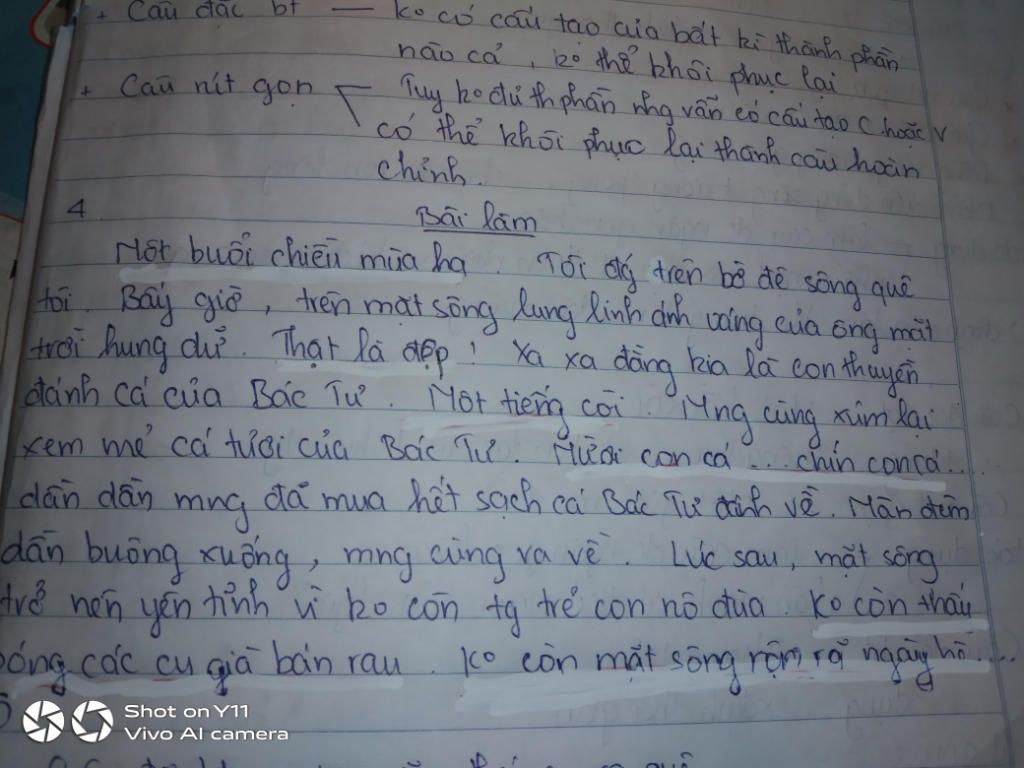 + Câu đặc bt — ko có cấu tạo của bất kì thành phần
nào cả, ko thể khôi phục lại
+ Câu rút gọn Tuy ko đủ th phần nhg vẫn có cấu tạo C hoặc V
có thể khôi phục lại thành câu hoàn
chỉnh.
4
Bài làm
Một buổi chiều mùa hạ. Tôi đg trên bờ đê sông quê
tôi. Bấy giờ, trên mặt sông lung linh ánh vàng của ông mặt
trời hung dữ. Thật là đẹp! Xa xa đằng kia là con thuyền
đánh cá của Bác Tư. Một tiếng còi. Mng cùng xúm lại
xem mẻ cá tươi của Bác Tư. Mười con cá... chín con cá...
dần dần mng đã mua hết sạch cá Bác Tư đánh về. Màn đêm
dần buông xuống, mng cùng ra về. Lúc sau, mặt sông
trở nên yên tĩnh vì ko còn tg trẻ con nô đùa Ko còn thấy
bóng các cụ già bán rau. Ko còn mặt sông rộn rã ngày hè....
Shot on Y11
Vivo AI camera